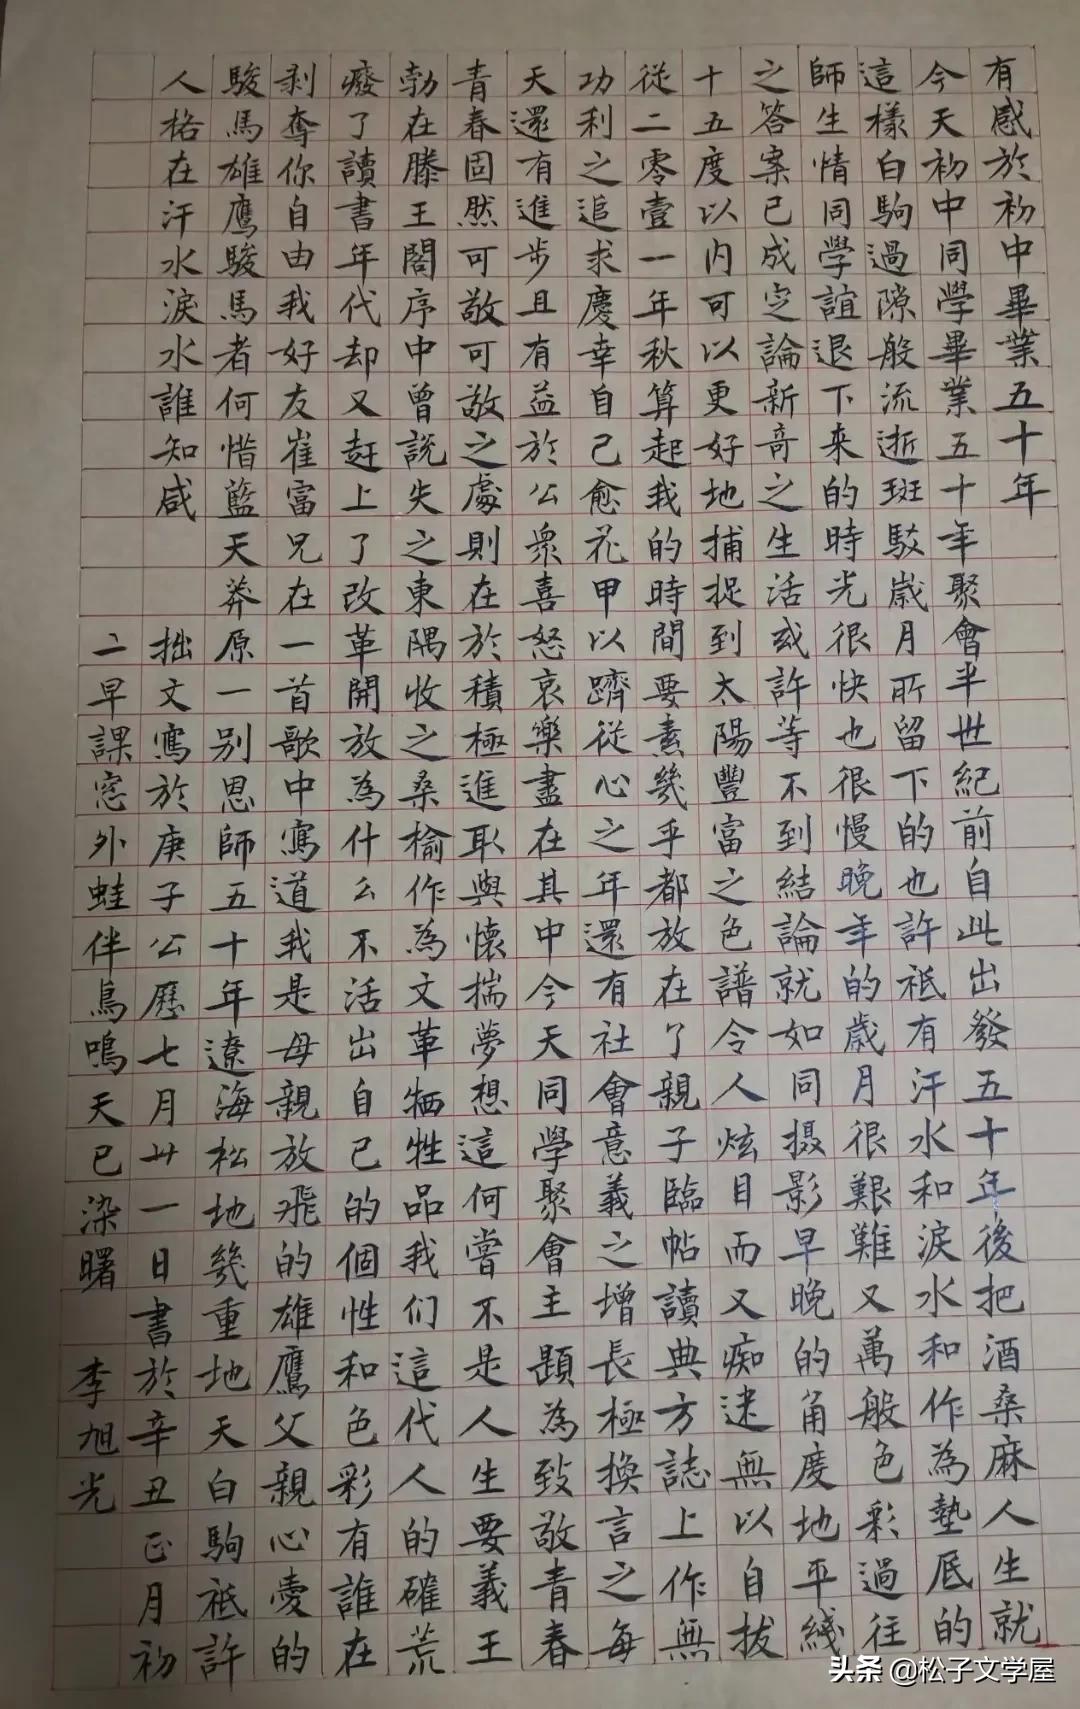 有感於初中畢業五十年
今天初中同學畢業五十年聚會半世紀前自此出發五十年後把酒桑麻人生就
這樣白駒過隙般流逝斑駁歲月所留下的也許祗有汗水和淚水和作為墊底的
師生情同學誼退下来的時光很快也很慢晚年的歲月很艱難又萬般色彩過往
之答案已成定論新奇之生活或許等不到結論就如同摄影早晚的角度地平綫
十五度以内可以更好地捕捉到太陽豐富之色譜令人炫目而又痴迷無以自拔
從二零壹一年秋算起我的時間要素幾乎都放在了親子臨帖讀典方誌上作無
功利之追求慶幸自己愈花甲以躋從心之年還有社會意義之增長極換言之每
天還有進步且有益於公衆喜怒哀樂盡在其中今天同學聚會主題為致敬青春
青春固然可敬可敬之處則在於積極進取與懷揣夢想這何嘗不是人生要義王
勃在滕王閣序中曾説失之東隅收之桑榆作為文革牺牲品我们這代人的確荒
癈了讀書年代却又赶上了改革開放為什么不活出自己的個性和色彩有誰在
剥奪你自由我好友崔富兄在一首歌中寫道我是母親放飛的雄鷹父親心愛的
駿馬雄鷹駿馬者何惜藍天莽原一别恩師五十年遼海松地幾重地天白駒祗許
人格在汗水淚水誰知咸
拙文寫於庚子公歷七月廿一日書於辛丑正月初
二早課窓外蛙伴鳥鳴天已染曙 李旭光
头条 @松子文学屋